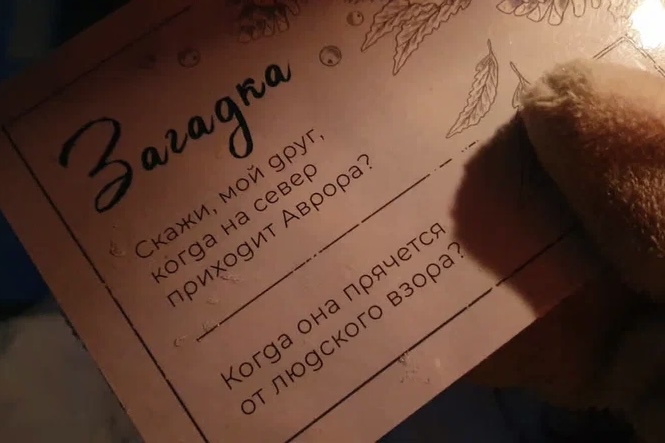 Загадка
Скажи, мой друг,
когда на север
приходит Аврора?
Когда она прячется
от людского взора?